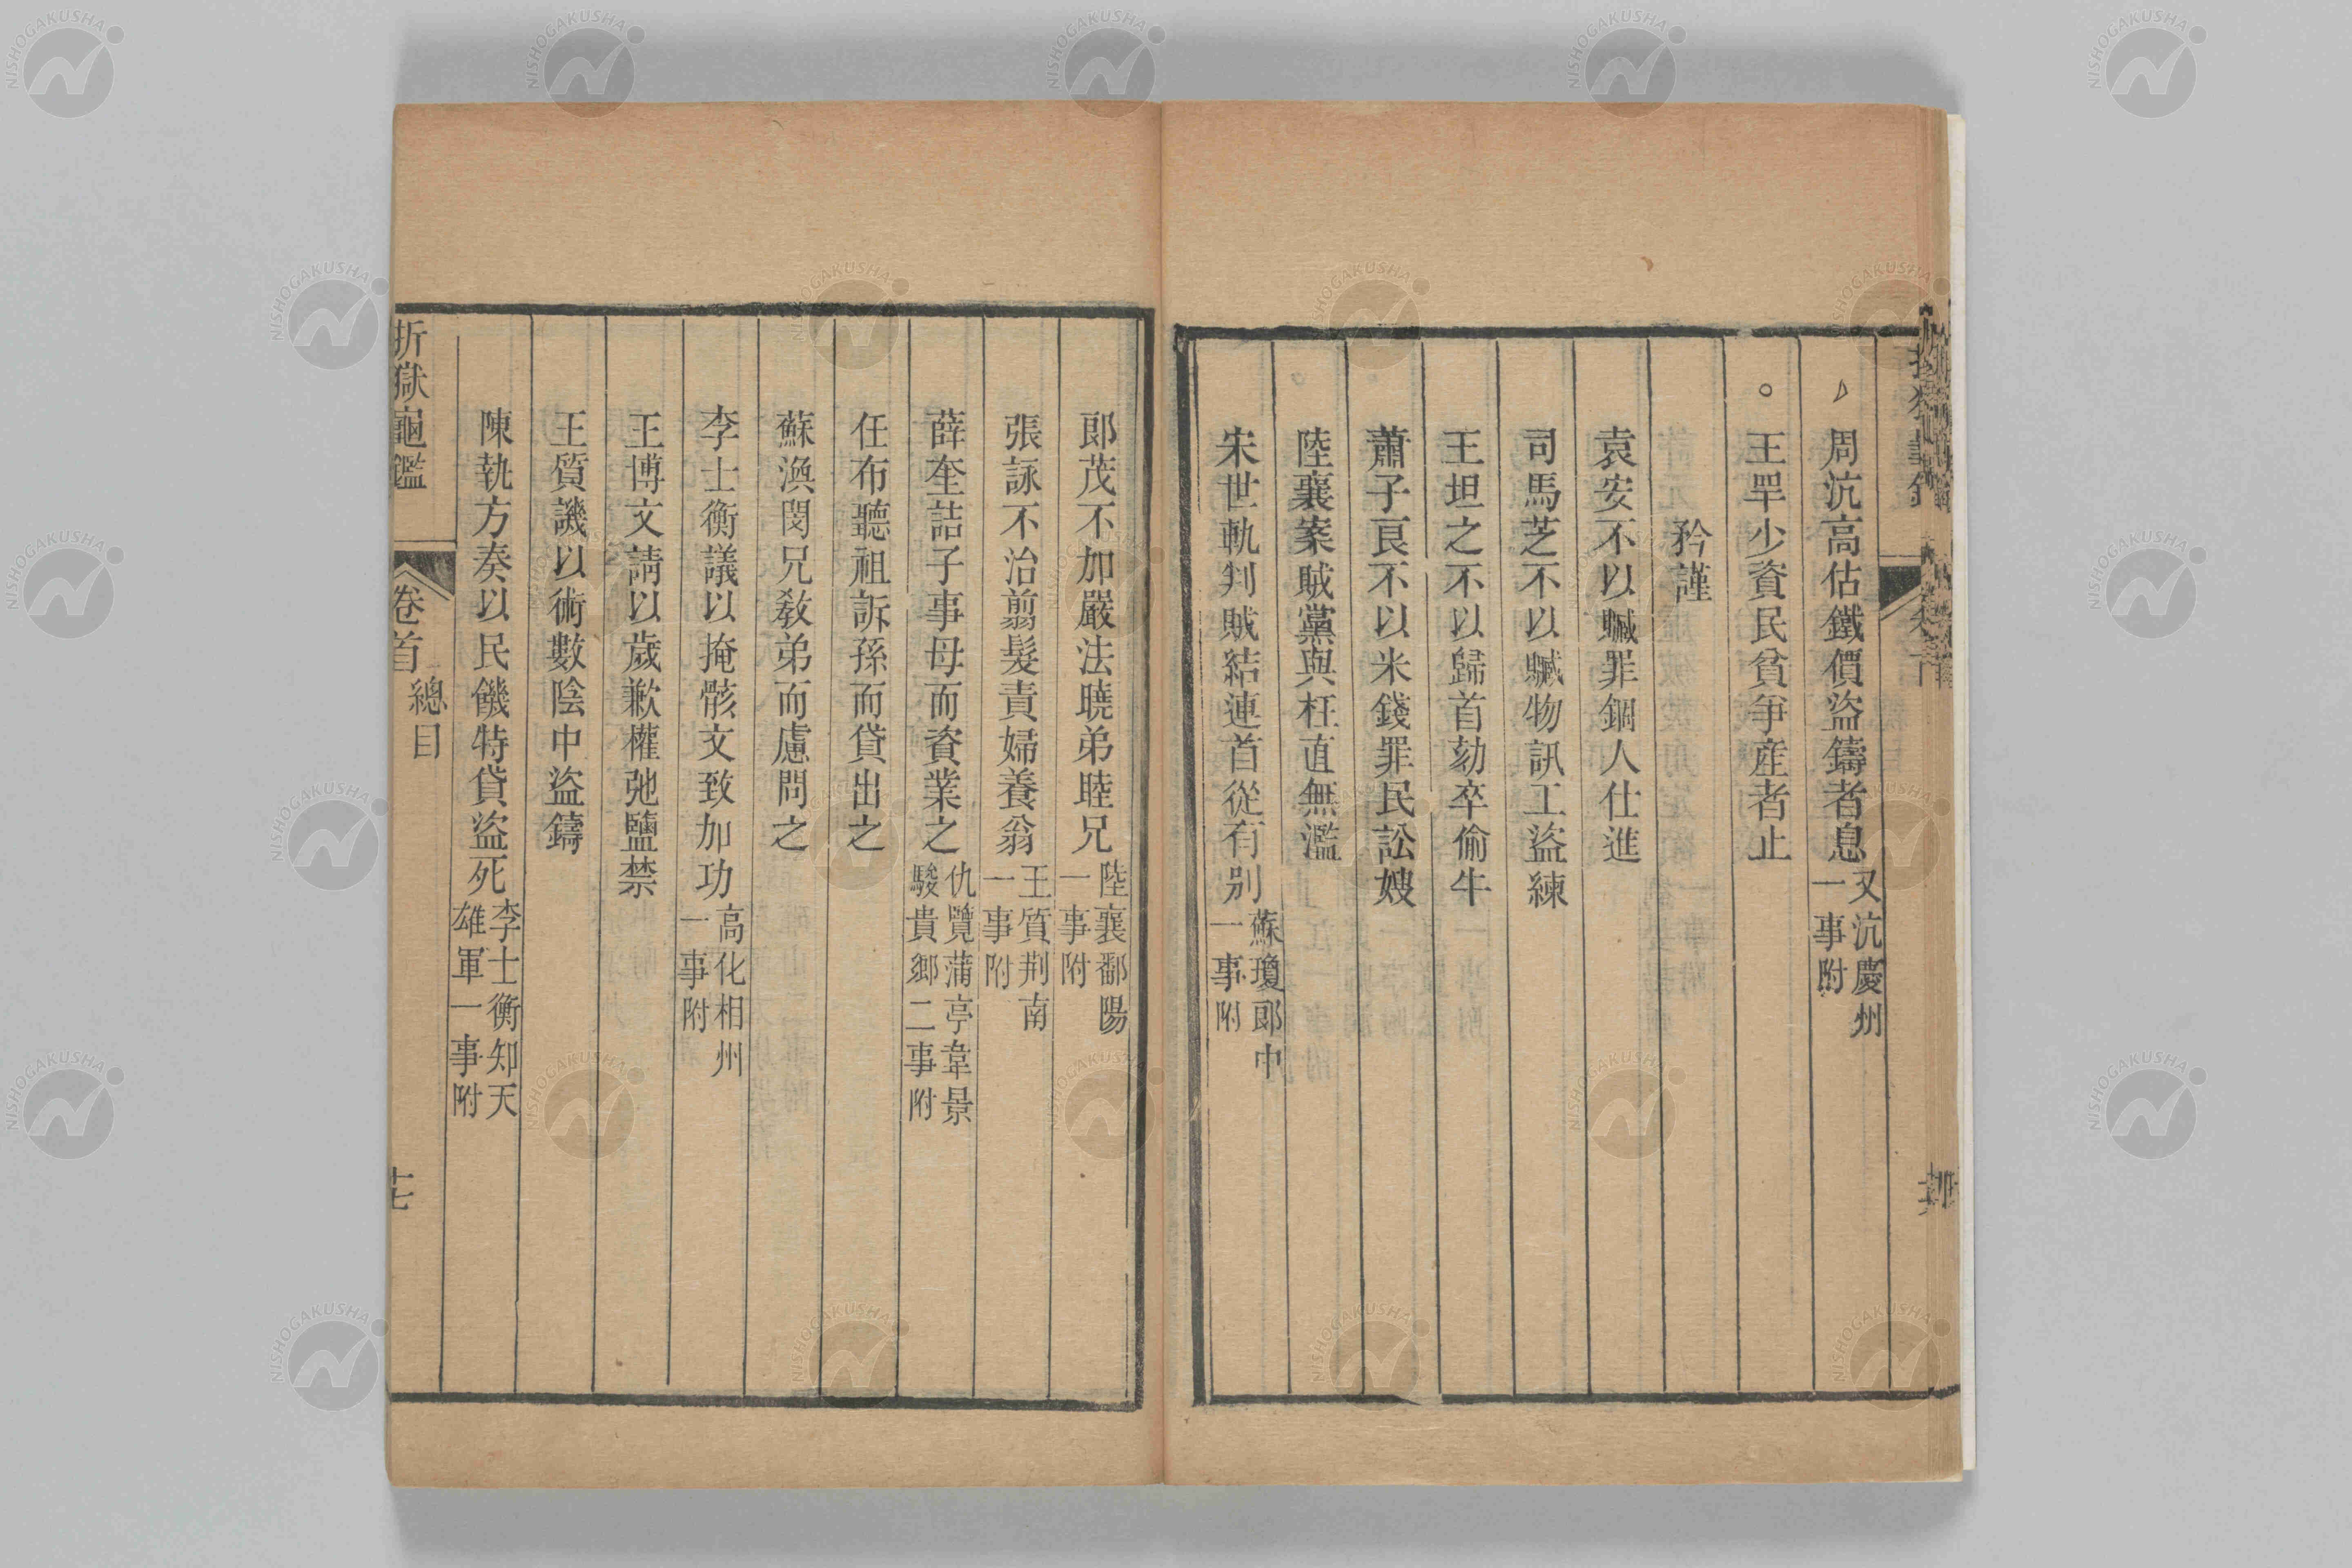 周沆高估鐵價盜鑄者息又沆慶州一事附
王罕少資民貧爭產者止
矜謹
袁安不以贓罪錮人仕進
司馬芝不以贓物訊工盜練
王坦之不以歸首劾卒偷牛
蕭子良不以米錢罪民訟嫂
陸襄案賊黨與枉直無濫
宋世軌判賊結連首從有別蘇瓊郎中一事附
郎茂不加嚴法曉弟睦兄陸襄鄱陽一事附
張詠不治翦髮責婦養翁王質荆南一事附
薛奎詰子事母而資業之仇覽蒲亭韋景駿貴鄉二事附
任布聽祖訴孫而貸出之
蘇渙閔兄敎弟而慮問之
李士衡議以掩骼文致加功高化相州一事附
王博文請以歲歉權弛鹽禁
王質譏以術數陰中盜鑄
陳執方奏以民饑特貸盜死李士衡知天雄軍一事附
折獄龜鑑 卷首 總目 十七
NISHOGAKUSHA